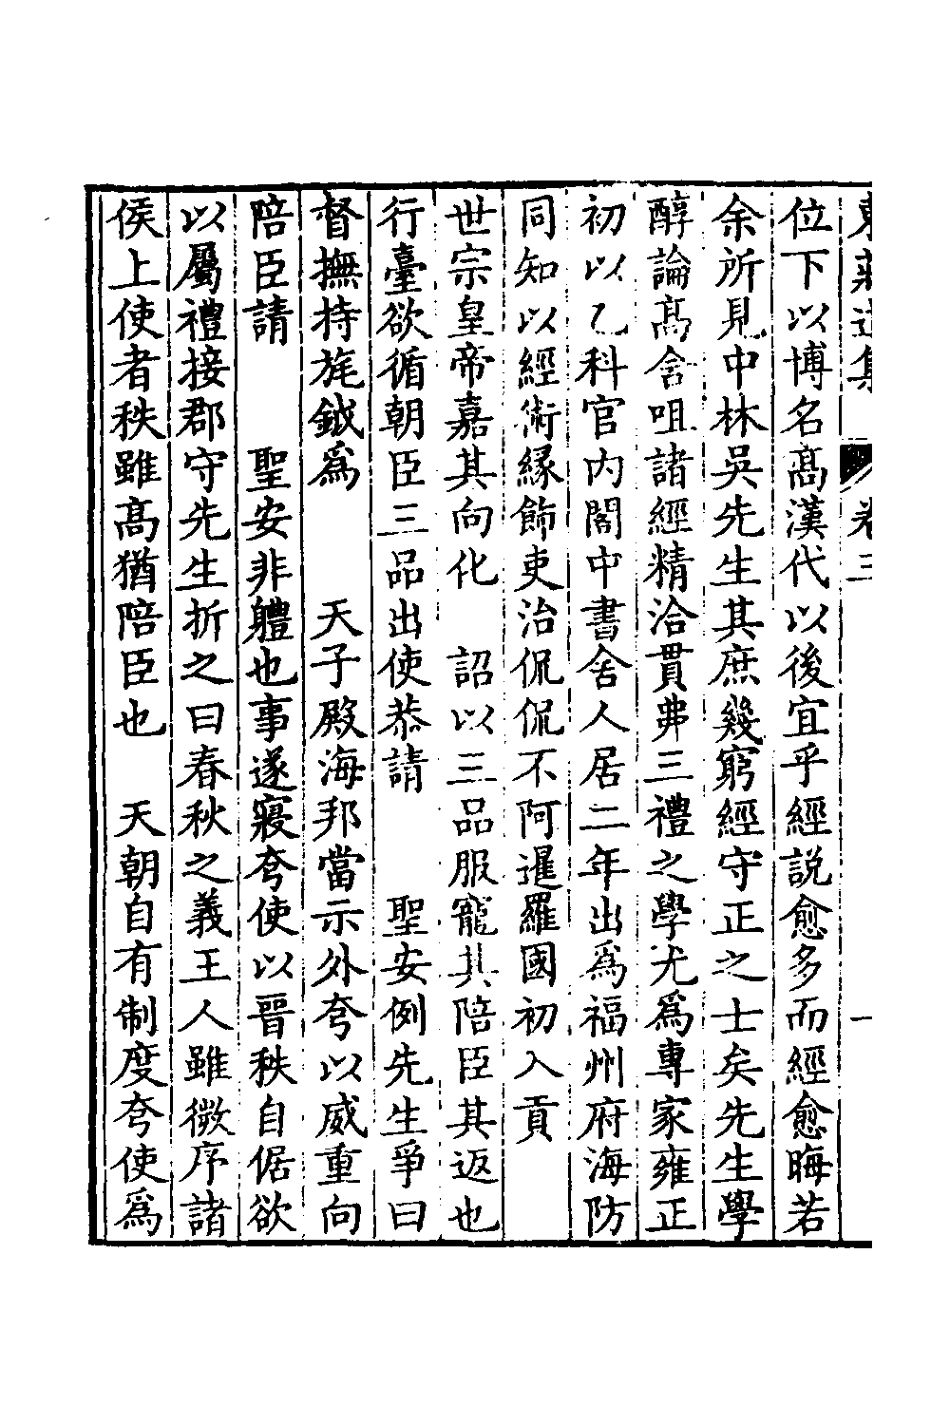 卷三
位下以博名髙漢代以後宜乎經說愈多而經愈晦若
余所見中林吳先生其庶幾窮經守正之士矣先生學
醇論髙含咀諸經精洽貫弗三禮之學尤爲專家雍正
初以乙科官内閣中書舍人居二年出爲福州府海防
同知以經術緣飾吏治侃侃不阿暹羅國初入貢
世宗皇帝嘉其向化　詔以三品服寵其陪臣其返也
行臺欲循朝臣三品出使恭請　聖安例先生爭曰
督撫持旄鉞爲　天子殿海邦當示外夸以威重向
陪臣請　聖安非軆也事遂寢夸使以晉秩自倨欲
以屬禮接郡守先生折之曰春秋之義王人雖微序諸
侯上使者秩雖髙猶陪臣也　天朝自有制度夸使爲